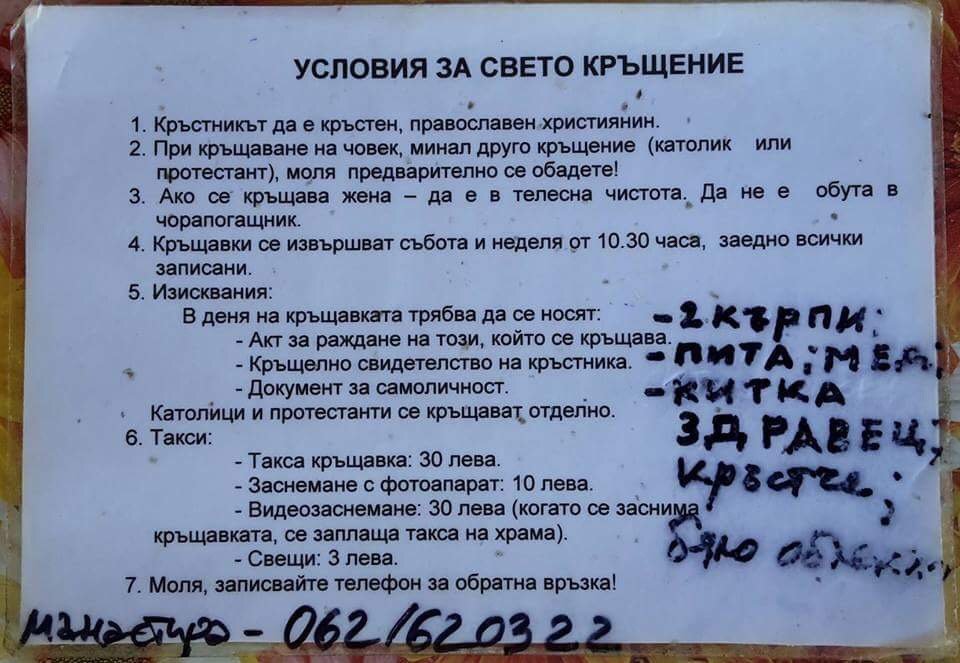 УСЛОВИЯ ЗА СВЕТО КРЪЩЕНИЕ
1. Кръстникът да е кръстен, православен християнин.
2. При кръщаване на човек, минал друго кръщение (католик или
протестант), моля предварително се обадете!
3. Ако се кръщава жена – да е в телесна чистота. Да не е обута в
чорапогащник.
4. Кръщавки се извършват събота и неделя от 10.30 часа, заедно всички
записани.
5. Изисквания:
В деня на кръщавката трябва да се носят:
- Акт за раждане на този, който се кръщава.
- Кръщелно свидетелство на кръстника.
- Документ за самоличност.
Католици и протестанти се кръщават отделно.
6. Такси:
- Такса кръщавка: 30 лева.
- Заснемане с фотоапарат: 10 лева.
- Видеозаснемане: 30 лева (когато се заснима
кръщавката, се заплаща такса на храма).
- Свещи: 3 лева.
7. Моля, записвайте телефон за обратна връзка!
- 2 кърпи;
- ПИТА; МЕД;
- КИТКА
ЗДРАВЕЦ;
Кръстче;
бяло
манастира - 062/620322